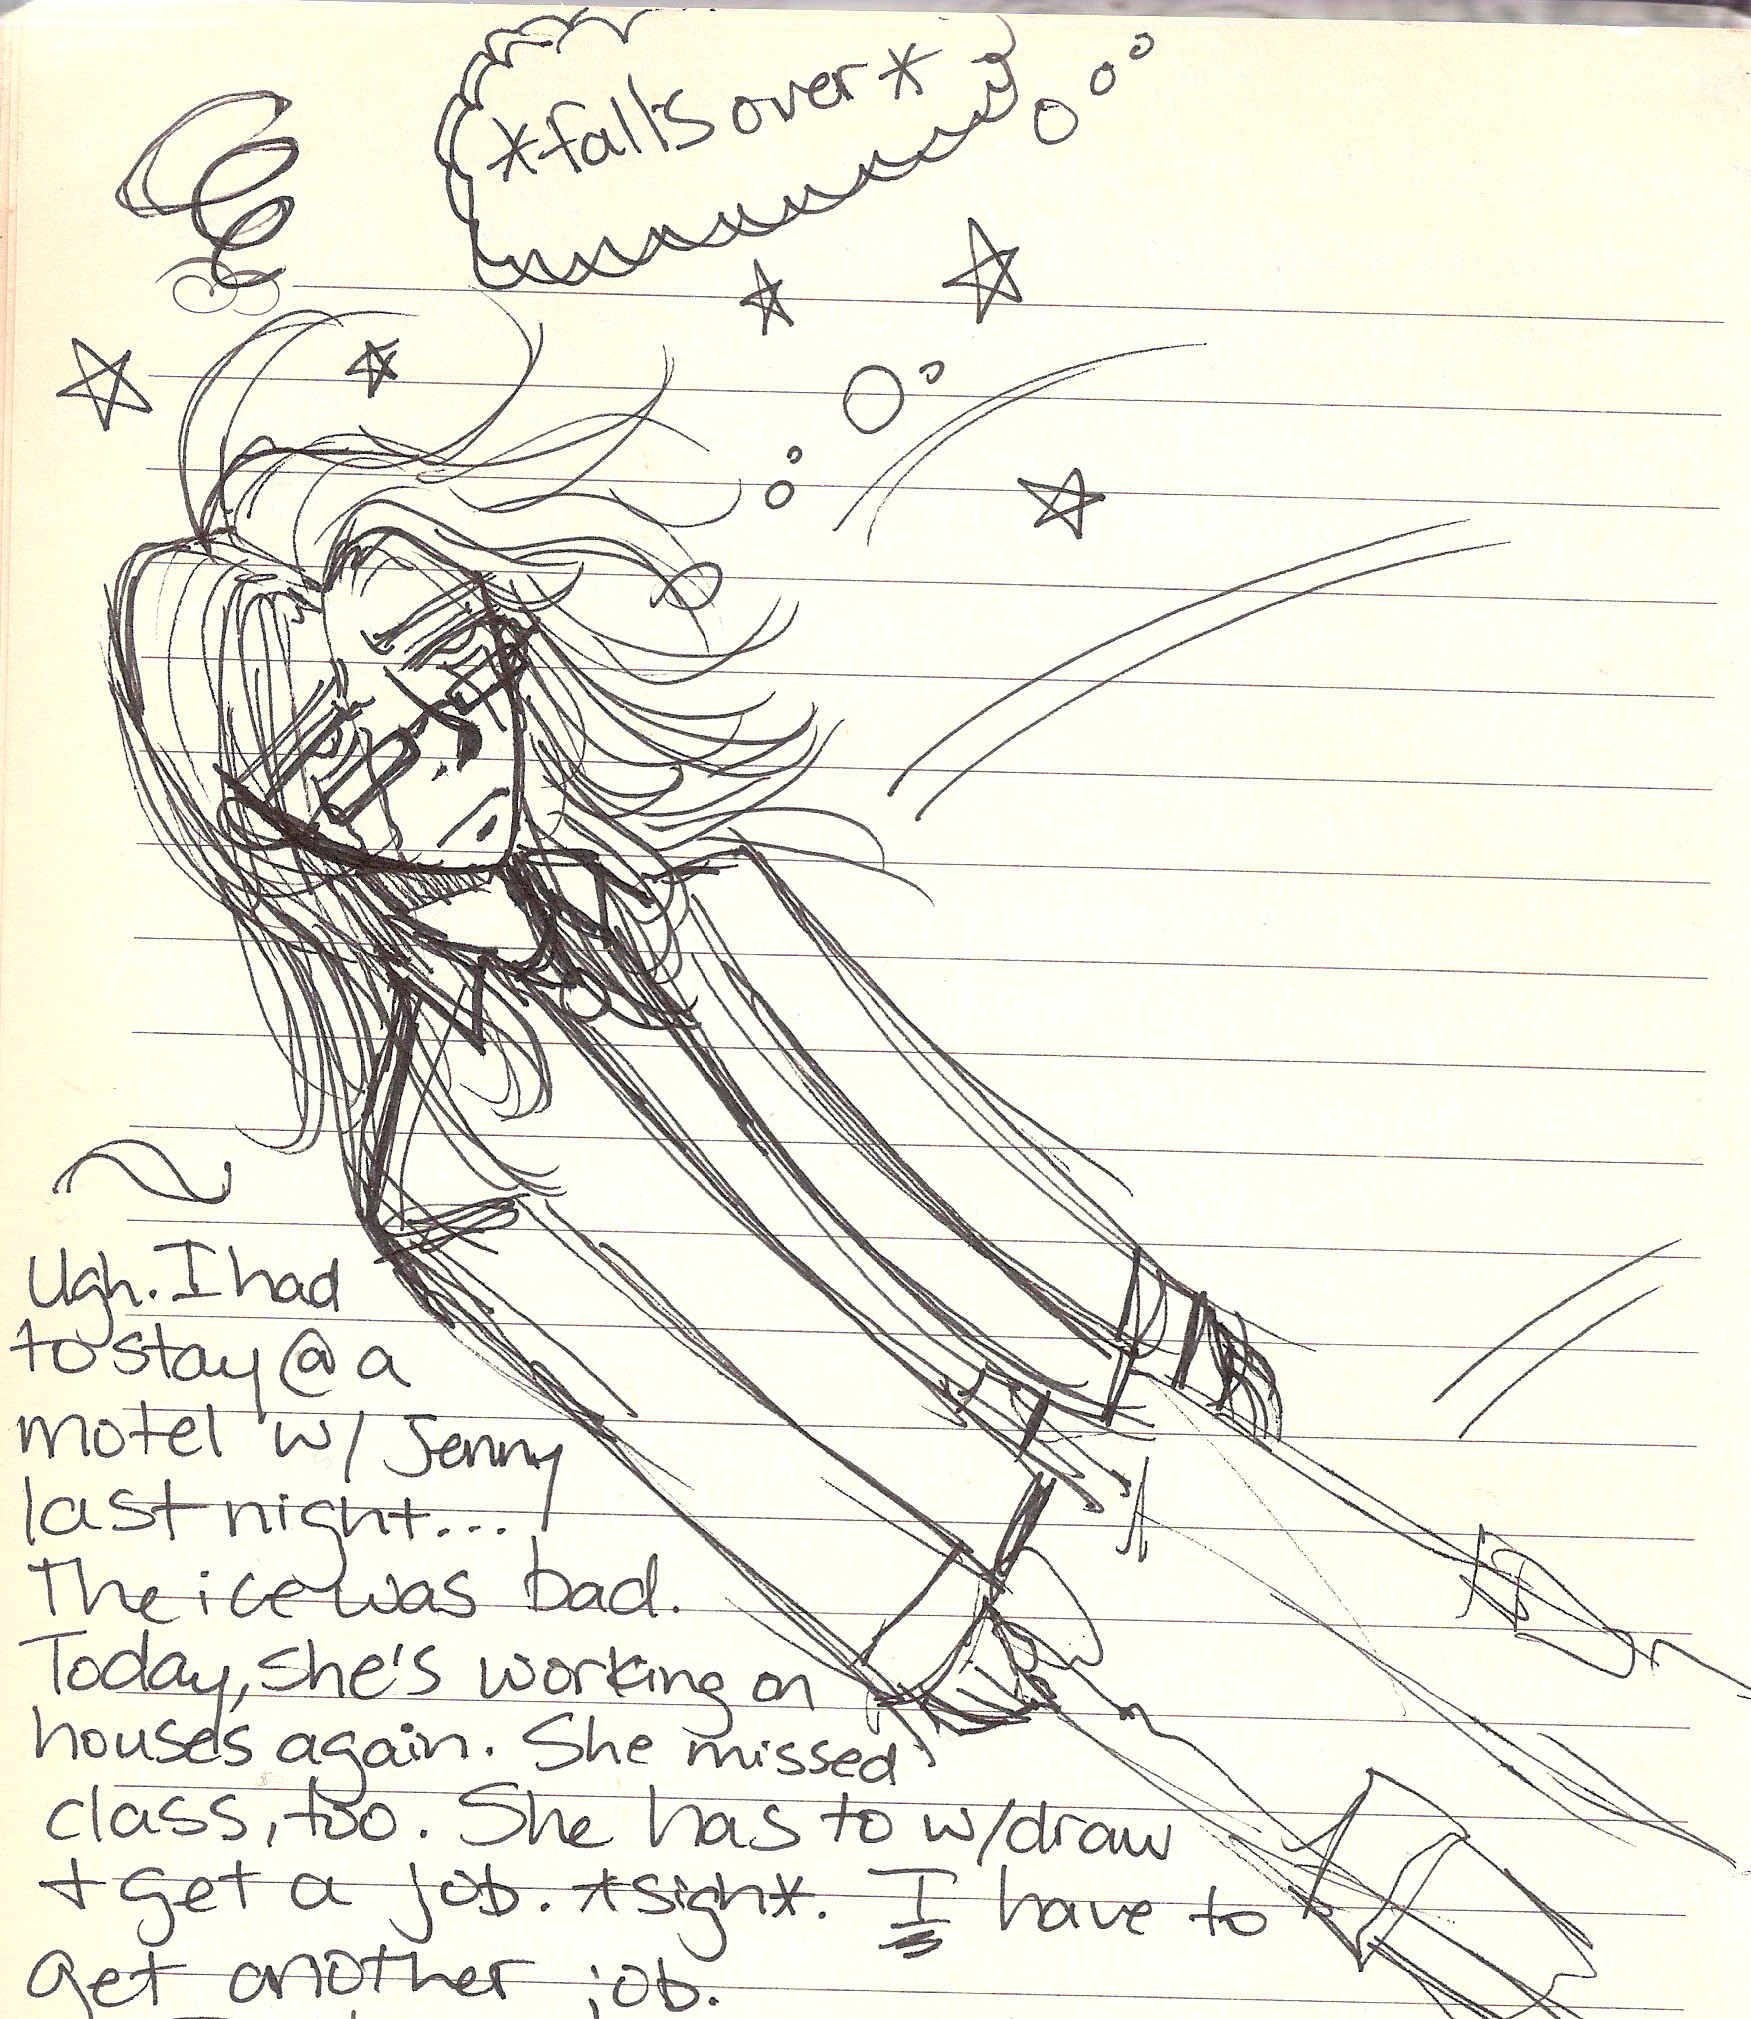 *falls over*
Ugh. I had
to stay @ a
motel w/ Jenny
last night...
The ice was bad.
Today, she's working on
houses again. She missed
class, too. She has to w/draw
+ get a job. *sigh*. I have to
get another job.